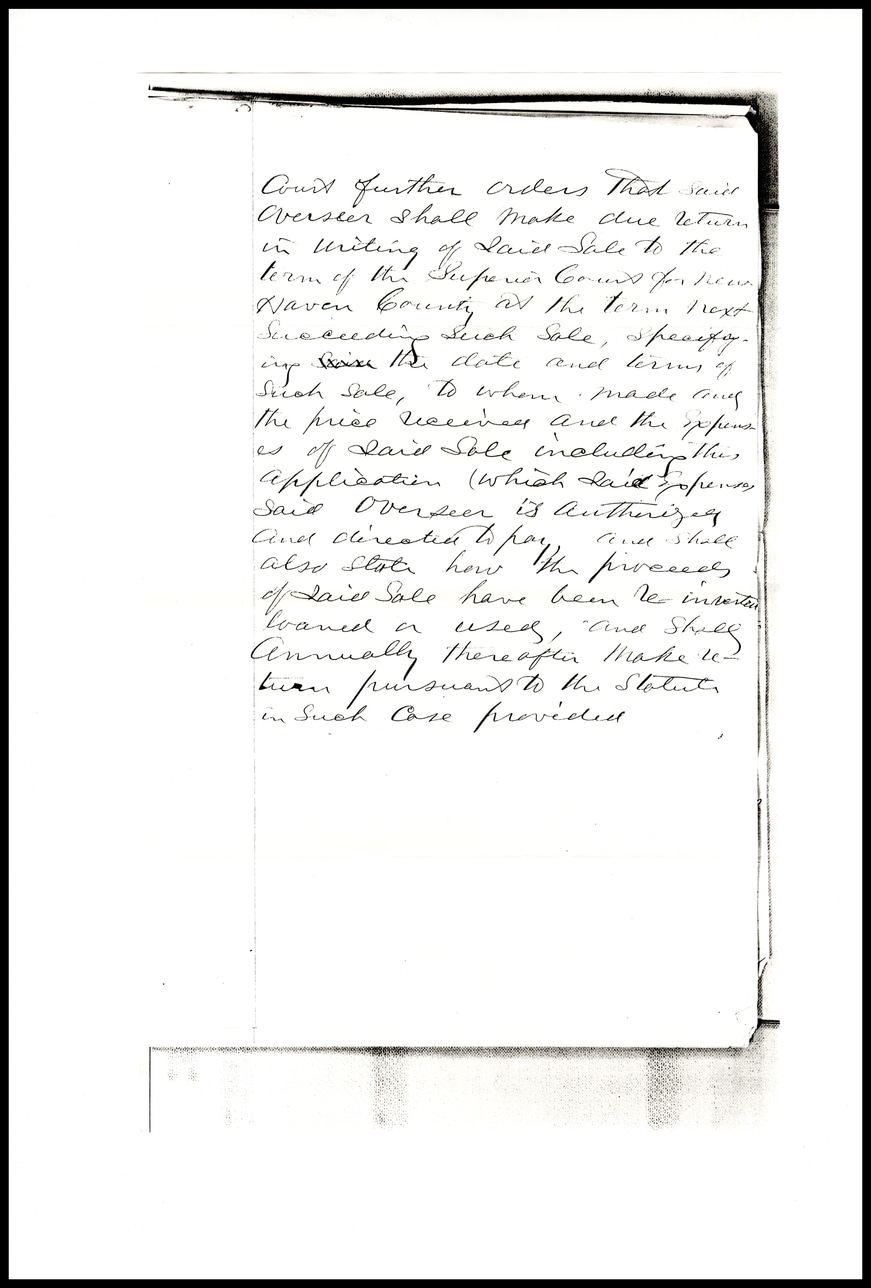 Court further orders that said
Overseer shall make due return
in writing of said Sale to the
term of the Superior Court for New
Haven County at the term next
Succeeding Such Sale, Specify-
ing the date and terms of
Such Sale, to whom made and
the price received and the Expens-
es of Said Sale including this
application (which Said Expenses
Said Overseer is authorized
and directed to pay, and shall
also State how the proceeds
of Said Sale have been re-invested
loaned or used, and Shall
Annually thereafter make re-
turn pursuant to the Statute
in Such Case provided